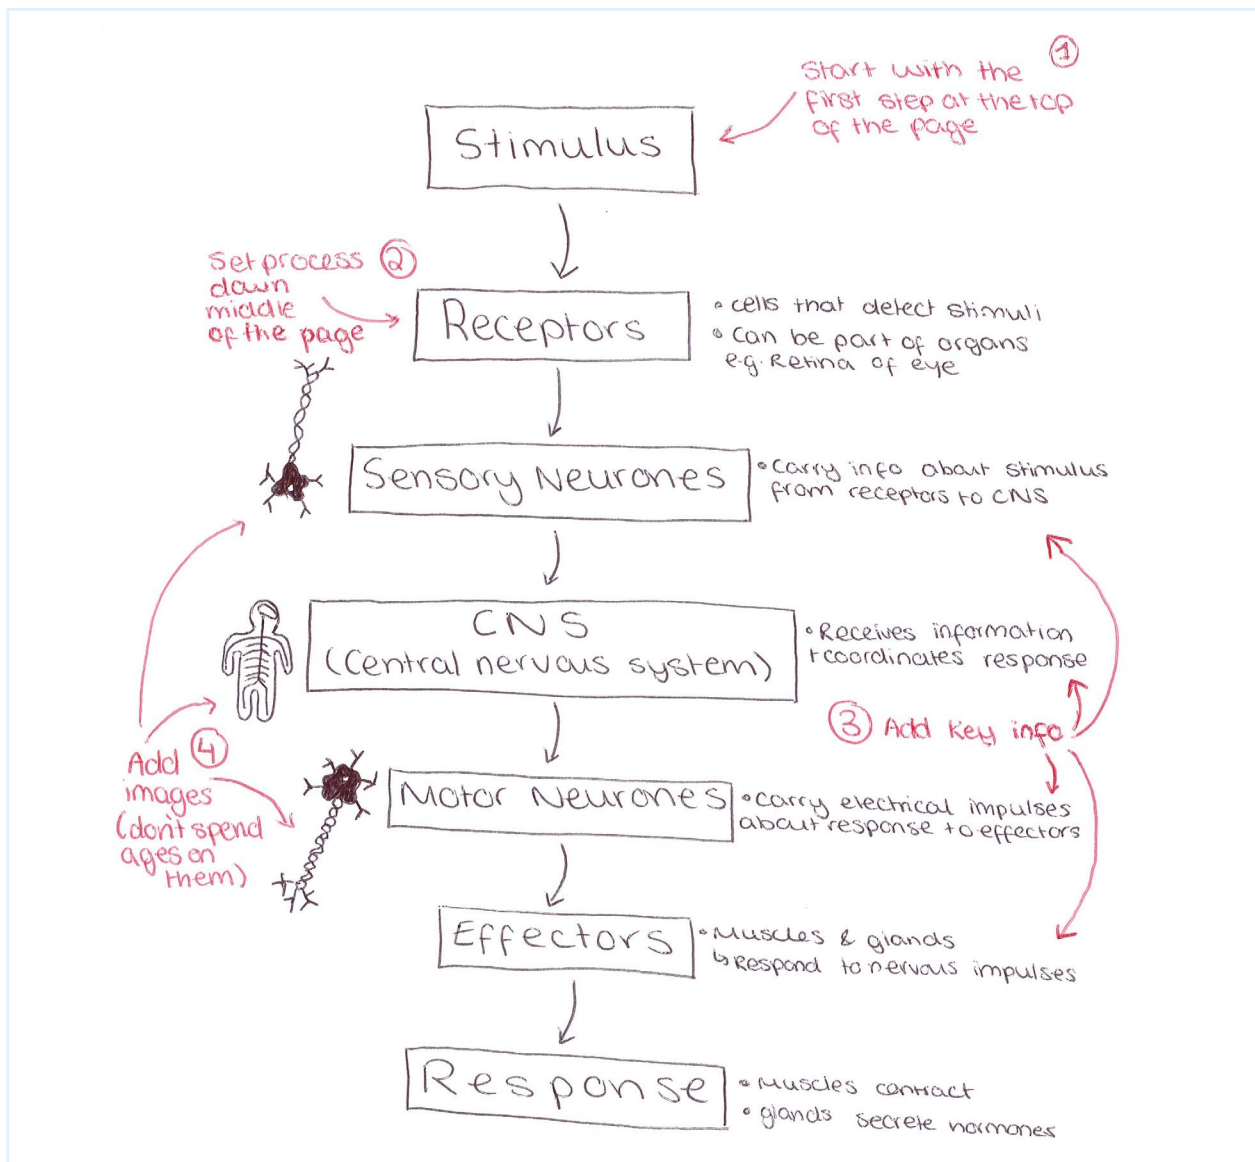 Start with the ①
first step at the top
of the page
Stimulus
Set process ②
down
middle
of the page
Receptors
• cells that detect stimuli
• can be part of organs
e.g. Retina of eye
Sensory Neurones
• carry info about stimulus
from receptors to CNS
CNS
(Central nervous system)
• Receives information
+ coordinates response
③ Add key info
Add ④
images
(don't spend
ages on
them)
Motor Neurones
• carry electrical impulses
about response to effectors
Effectors
• Muscles & glands
↳ Respond to nervous impulses
Response
• Muscles contract
• glands secrete hormones